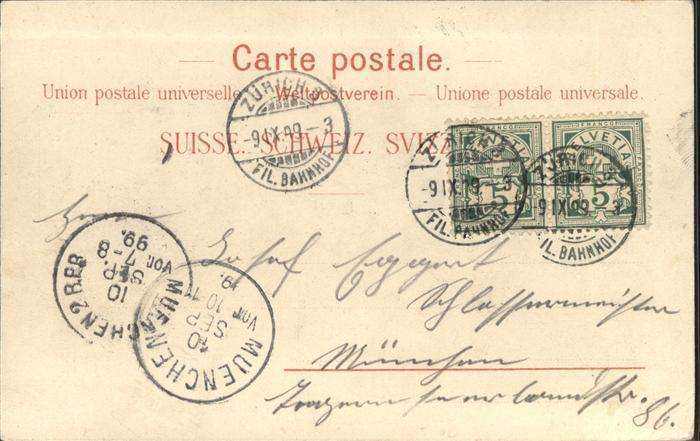 Carte postale.
Union postale universelle. — Weltpostverein. — Unione postale universale.
SUISSE. SCHWEIZ. SVIZ
ZÜRICH
-9 IX.99 - 3
FIL. BAHNHOF
ZÜRICH
-9 IX.99 - 3
FIL. BAHNHOF
ZÜRICH
9 IX.99 - 3
FIL. BAHNHOF
FRANCO
HELVETIA
5
FRANCO
HELVETIA
5
Josef Eggert
Schlossermeister
München
86.
MUENCHEN 2 B.P.B
10
SEP
Vor. 7-8
99.
MUENCHEN
10
SEP
Vor 10-11
MUENCHEN